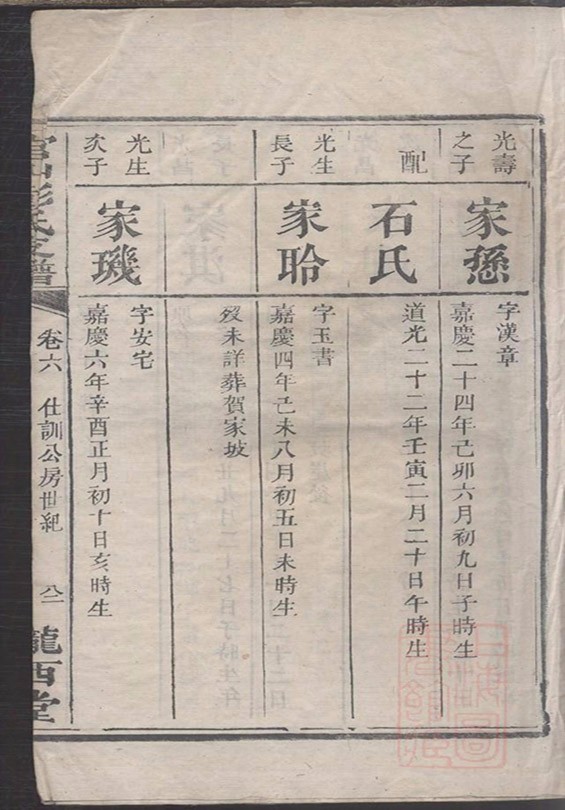 光壽
之子
家㥲
字漢章
嘉慶二十四年己卯六月初九日子時生
配
石氏
道光二十二年壬寅二月二十日午時生
光生
長子
家聆
字玉書
嘉慶四年己未八月初五日未時生
歿未詳葬賀家坡
光生
次子
家璣
字安宅
嘉慶六年辛酉正月初十日亥時生
彭氏支譜
卷六
仕訓公房世紀
八二
隴西堂